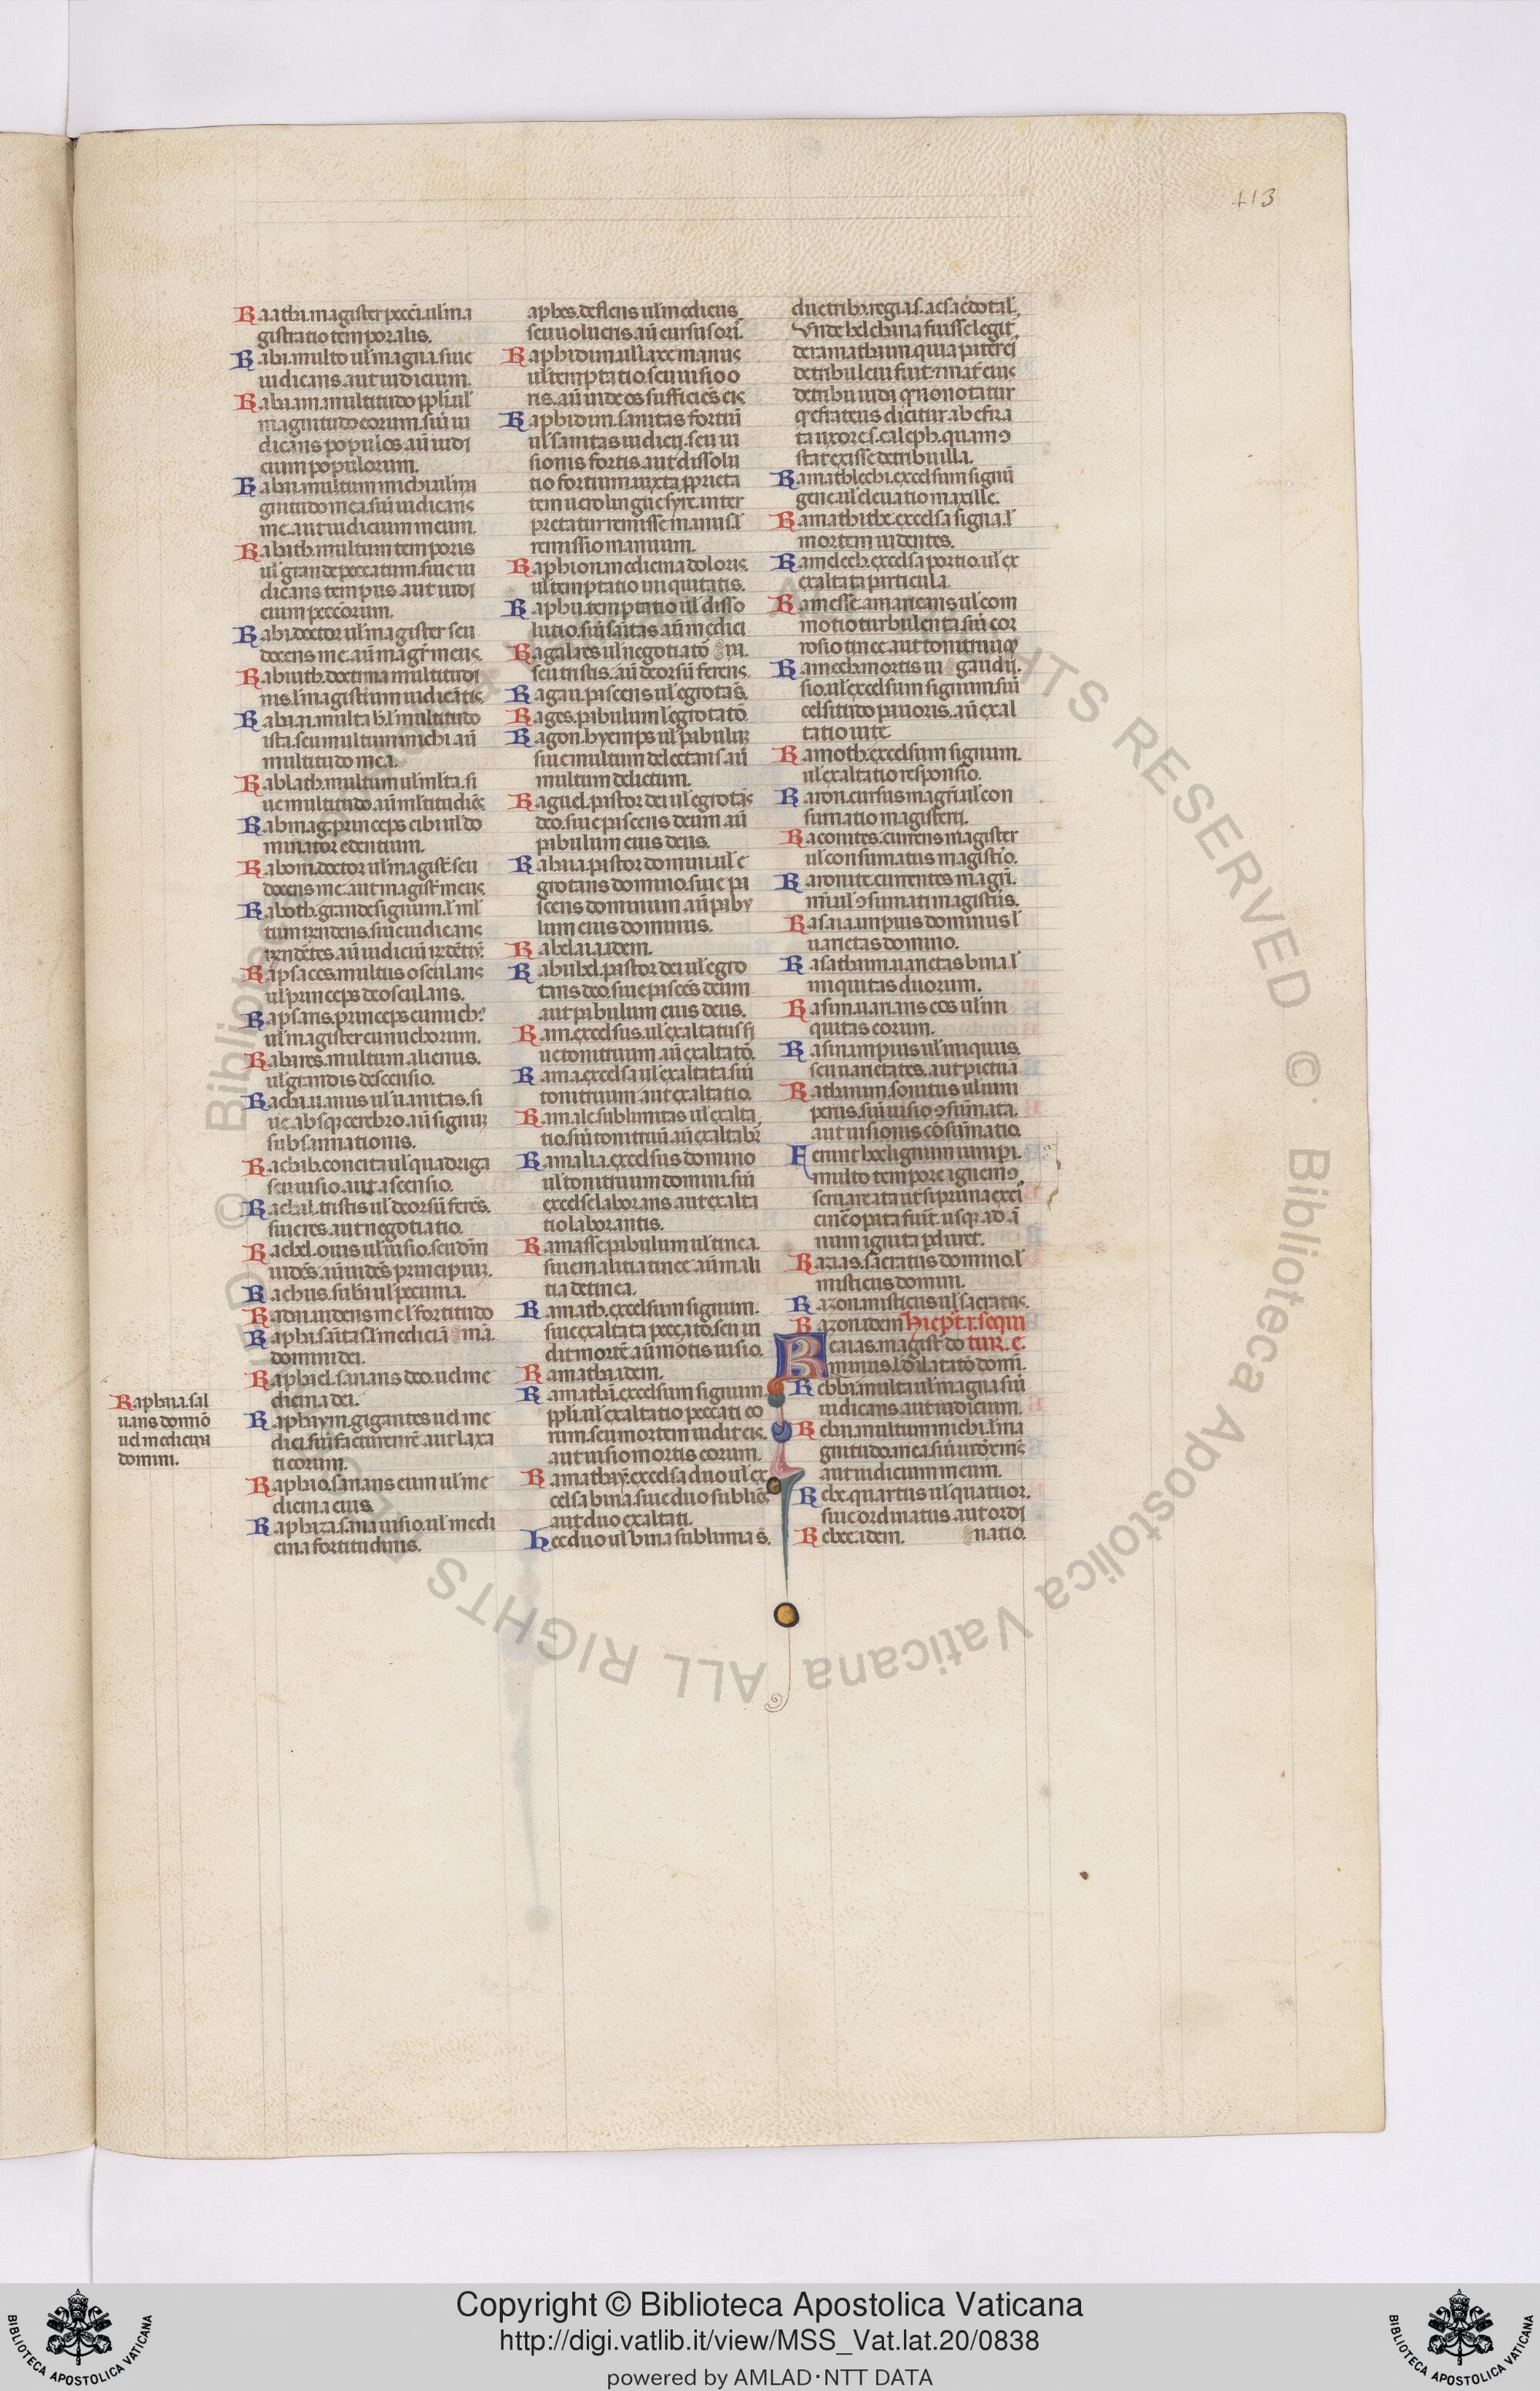 413
Raathi. magister pecci. ul' ma
gistratio temporalis.
Rabi. multo ul' magna. siue
iudicans. aut iudicium.
Rabiam. multitudo ppli. ul'
magnitudo eorum. siu iu
dicans populos. aū iudi
cium populorum.
Rabii. multum michi. ul' ma
gnitudo mea. siū iudicans
me. aut iudicium meum.
Rabith. multum temporis
ul' grande peccatum. siue iu
dicans tempus. aut iudi
cium peccorum.
Rabi. doctor ul' magister seu
docens me. aū magr̄ meus.
Rabiuth. doctrina multitudi
nis. l' magistrium iudicātis.
multa b. l' multitudo
ista. seu multum michi. aū
multitudo mea.
Rablath. multum ul' ml'ta. si
ue multitudo. aū
Rabmag. princeps cibi ul' do
minator edentium.
Raboni. doctor ul' magist̄. seu
docens me. aut magist̄ meus.
Raboth. grande signum. l' ml'
tum siue iudicans
aū iudiciū
Rapsaces. multus osculans
ul' princeps deosculans.
Rapsaris. princeps eunuch
ul' magister eunuchorum.
Rabsres. multum alienus.
ul' grandis descensio.
Rachi. uanus ul' uanitas. si
ue absq; cerebro. aū signuʒ
subsannationis.
Rachib. concita ul' quadriga
seu uisio. aut ascensio.
Rachal. tristis ul' deorsū ferēs.
siu eres. aut negotiatio.
Rachel. ouis ul' uisio. seu dm̄
uidēs. aū uidēs principiuʒ.
Rachus. subi ul' pecunia.
Radon. uidens me l' fortitudo
Raphi. sāitas. l' mediciā mā.
domini dei.
Raphiel. sanans deo. uel me
dicina dei.
Raphaym. gigantes uel me
dici. siū facturemē. aut laxa
ti eorum.
Raphio. sanans eum ul' me
dicina eius.
Raphiza. sana uisio. ul' medi
cina fortitudinis.
Raphaia. sal
uans dominō
uel medicina
domini.
aphes. deflens ul' medicus
seu uoluens. aū cursus ori.
Raphidim. ull laxe manus
ul' temptatio. seu uisio o
ris. aū uide os sufficiēs eis
Raphidim. sanitas fortiū
ul' sanitas iudicij. seu ui
sionis fortis. aut dissolu
tio fortium. iuxta ꝓprieta
tem uero lingue syre. inter
pretatur remisse manus. l'
remissio manuum.
Raphion. medicina doloris.
ul' temptatio iniquitatis.
Raphu. temptatio ul' disso
lutio. siū sāitas aū medici
Ragalares ul' negotiatō
seu tristis. aū deorsū ferens.
Ragau. pascens ul' egrotās.
Rages. pabulum l' egrotatō.
Ragon. hyemps ul' pabuluʒ
siue multum delectans aū
multum delictum.
Raguel. pastor dei ul' egrotās
deo. siue pascens deum aū
pabulum eius deus.
Rahaia. pastor domini ul' e
grotans domino. siue pa
scens dominum aū paby
lum eius dominus.
Rahelaia. idem.
Rahuhel. pastor dei ul' egro
tans deo. siue pascēs deum
aut pabulum eius deus.
Ram. excelsus. ul' exaltatus si
ue tonitruum aū exaltatō.
Rama. excelsa ul' exaltata siū
tonitruum aut exaltatio.
Ramale. sublimitas ul' exalta
tio. siū tonitruū. aū exaltabr̄
Ramalia. excelsus domino
ul' tonitruum domini. siū
excelse laborans. aut exalta
tio laborantis.
Ramasse. pabulum ul' tinea.
siue malitia tinee aū mali
tia de tinea.
Ramath. excelsum signum.
siue exaltata peccato. seu ui
dit mortē aū motis uisio.
Ramatha. idem.
Ramathi. excelsum signum
ppli. ul' exaltatio peccati eo
rum. seu mortem iudit eis.
aut uisio mortis eorum.
Ramathay. excelsa duo ul' ex
celsa bina. siue duo sublies
aut duo exaltati.
Hec duo ul' bina sublimia s̄.
due tribʒ regia. s. ac sacdotal'.
Vnde helchana fuisse legit'
de ramathaim. quia pater ei
de tribu leui fuit. mat' eius
de tribu iuda qn̄ notatur
q efrateus dicitur ab efra
ta uxore. s. caleph. quam ɔ
stat exisse de tribu illa.
Ramathlechi. excelsum signū
gene ul' eleuatio maxille.
Ramathite. excelsa signa. l'
mortem uidentes.
Ramelech. excelsa portio. ul' ex
exaltata particula.
Ramesse. amaricans ul' com
motio turbulenta. siū cor
rosio tinee. aut tonitruuʒ
Ramech. mortis ui gaudij.
sio. ul' excelsum signum. siū
celsitudo pauoris. aū exal
tatio uite.
Ramoth. excelsum signum.
ul' exaltatio responsio.
Raron. cursus magri. ul' con
sumatio magisterij.
Raconites. currens magister
ul' consumatus magistrio.
Raronite. currentes magri.
ul' ɔsumati magistris.
Rasaia. impius dominus l'
uarietas domino.
Rasathaim. uarietas bina l'
iniquitas duorum.
Rasim. uarians eos ul' ini
quitas eorum.
Rasin. impius ul' iniquus.
seu uarietates. aut pictura
Rathamim. sonitus ul' iuni
perus. siū uisio ɔsūmata.
aut uisionis cōsūmatio.
Ferunt hoc lignum iuniperi.
multo tempore ignem ɔ
seruare ita ut si pruna exei
cinē opita fuit. usq; ad ā
num ignita pduret.
Razias. sacratus domino. l'
misticus domini.
Razon. misticus ul' sacratus.
Razon. idem Hic pt r. sequi
Reaias. magist̄ do tur. e.
minus. l' dilatatō domi.
Rebbi. multa ul' magna siū
iudicans aut iudicium.
Rebii. multum michi. l' ma
gnitudo. mea. siū
aut iudicium meum.
Rebe. quartus ul' quatuor.
siue ordinatus. aut ordi
Rebee. idem. natio.
© Biblioteca Apostolica Vaticana ALL RIGHTS RESERVED
Copyright © Biblioteca Apostolica Vaticana
http://digi.vatlib.it/view/MSS_Vat.lat.20/0838
powered by AMLAD·NTT DATA
BIBLIOTECA APOSTOLICA VATICANA
BIBLIOTECA APOSTOLICA VATICANA